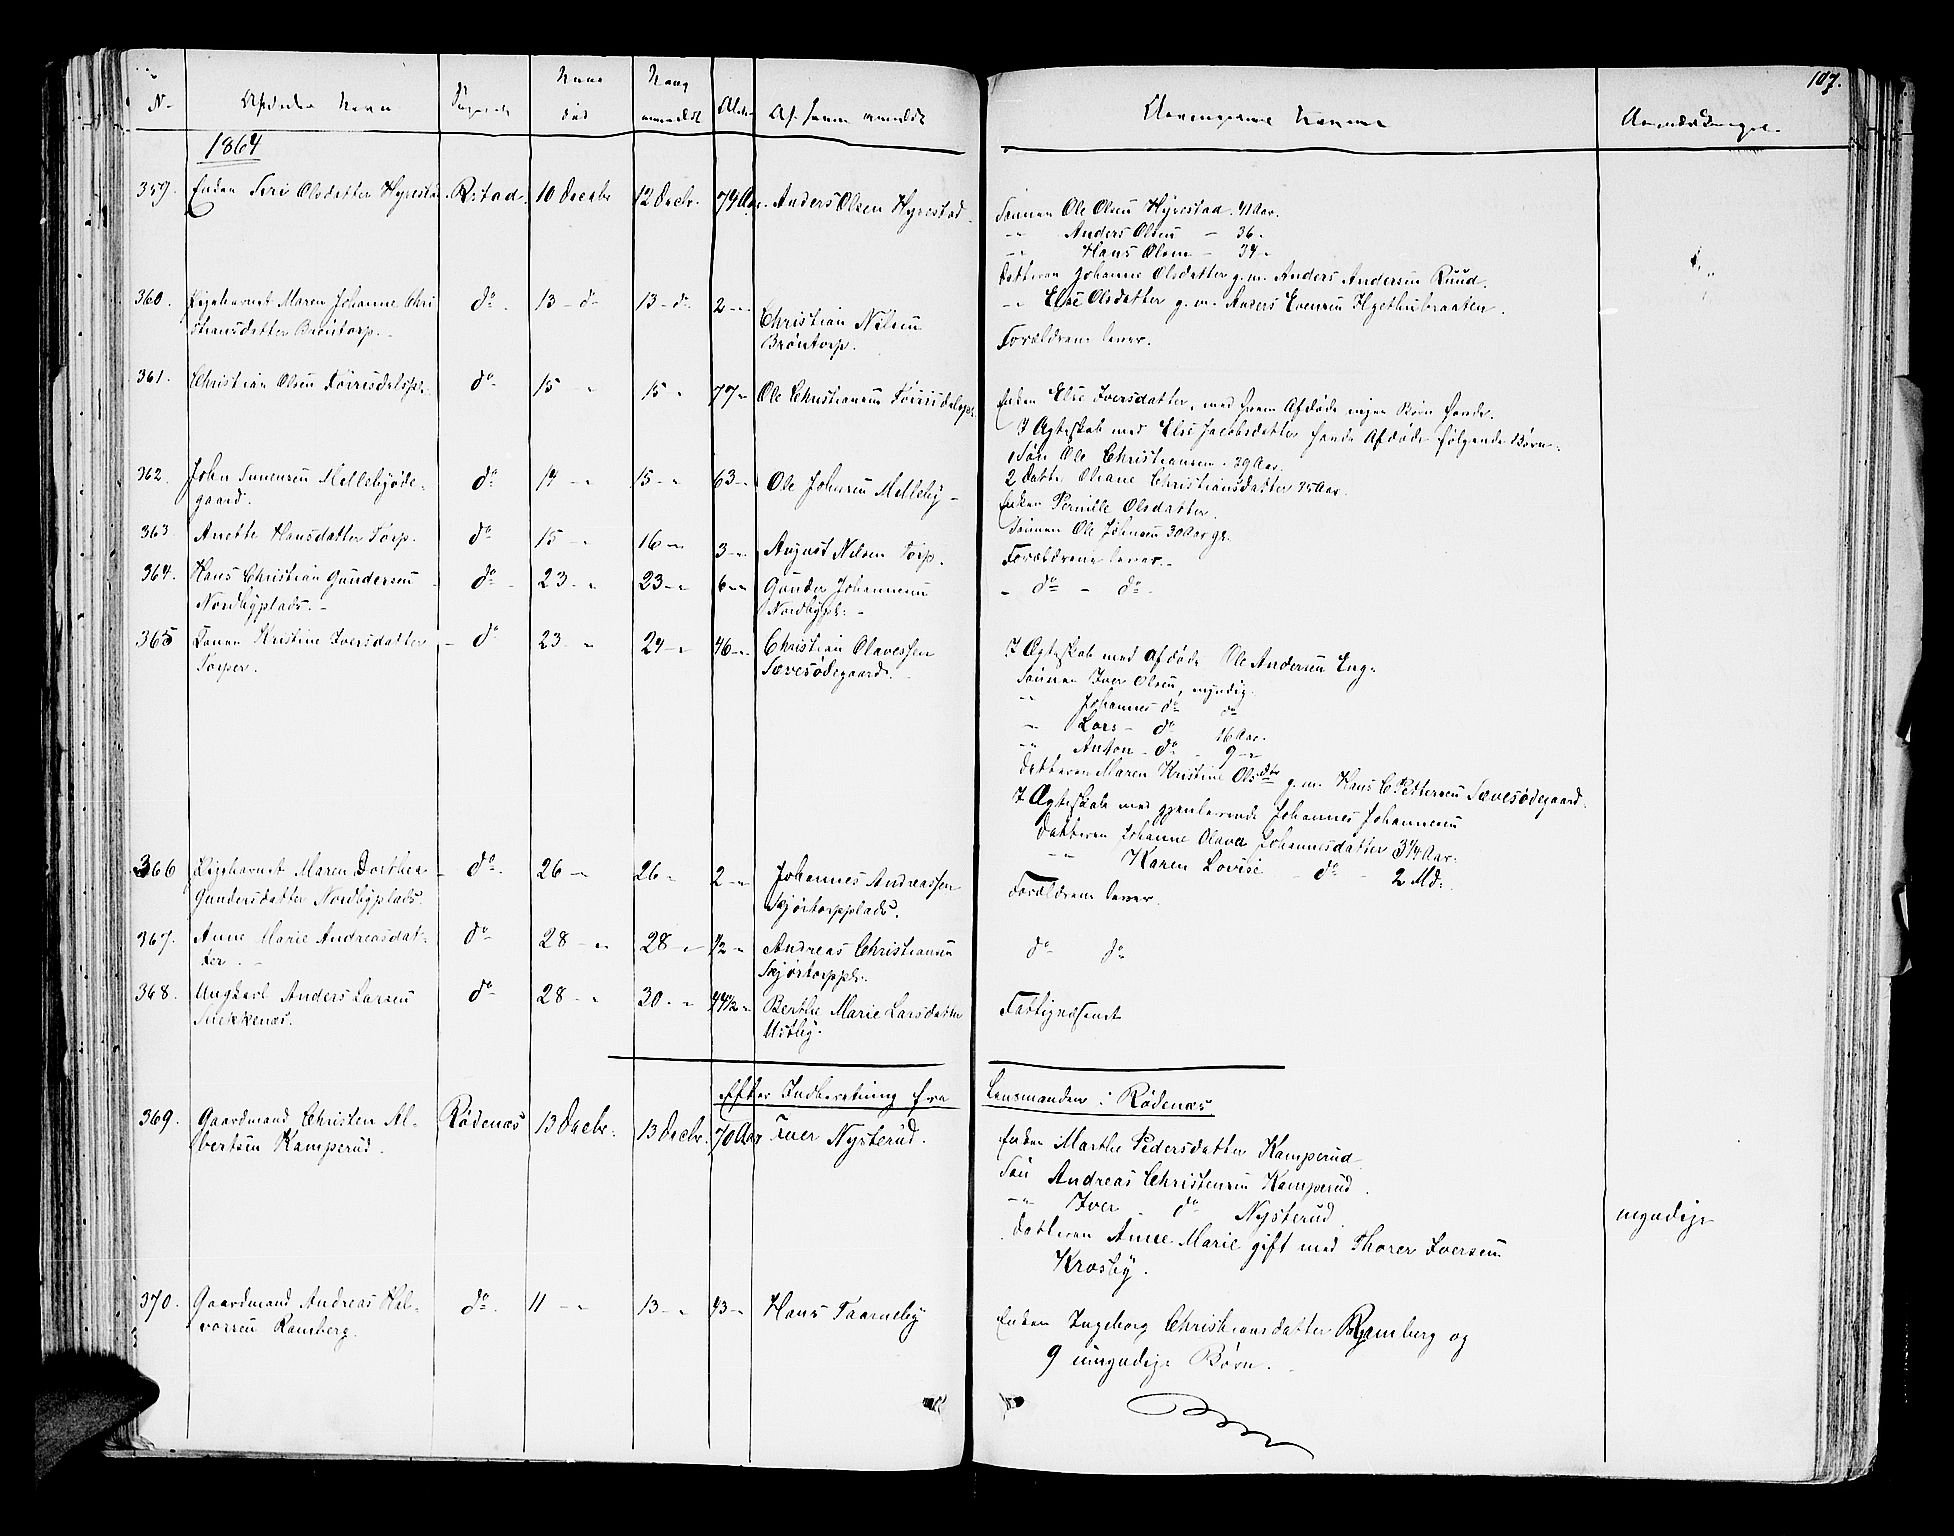 107.
N.
Afdødes Navn
Sogn
Naar død
Naar anmeldt
Alder
Af hvem anmeldt
Arvingernes Navne
Anmærkninger
1864
359. Enken Siri Olsdatter Hyrestad Rstad. 10 Decebr 12 Decbr. 79 Aar. Anders Olsen Hyrestad.
Sønnen Ole Olsen Hyrestad. 41 Aar.
" Anders Olsen - 36 "
" Hans Olsen - 34 "
Datteren Johanne Olsdatter g. m. Anders Andersen Ruud.
" Else Olsdatter g. m. Anders Evensen
360. Pigebarnet Maren Johanne Chri
stiansdatter Brøntorp. do. 13 - do 13 - do. 2 - " Christian Nilsen
Brøntorp.
Forældrene lever.
361. Christian Olsen do 15 - " 15 - " 77 " Ole Christiansen
Enken Else Iversdatter, med hvem Afdøde ingen Børn havde.
I Ægteskab med Else Jacobsdatter havde Afdøde følgende Børn.
1 Søn Ole Christiansen. 29 Aar.
2 Datt. Oleane Christiansdatter 25 Aar.
362. John Mellebyøde-
gaard. do 14 - " 15 - " 63 - " Ole Johnsen Melleby -
Enken Pernille Olsdatter.
Sønnen Ole Johnsen 30 Aar gl.
363. Anette Hansdatter Torp. do 15 - " 16 - " 3 - " August Nilsen Torp.
Forældrene lever. -
364. Hans Christian Gundersen
Nordbyplads. - do - 23 - " 23 - " 6 - " Gunder Johannesen
Nordbypl. -
" do - do -
365 Konen Kristine Iversdatter
Torper. - do 23 - " 24 - " 46 - " Christian Olavessen
Sævesødegaard.
I Ægteskab med afdøde Ole Andersen Eng.
Sønnen Iver Olsen, myndig.
" Johannes do do
" Lars - do 16 Aar.
" Anton - do - 9 - "
Datteren Maren Kristine Olsdtr g. m. Hans C. Pettersen Sævesødegaard.
I Ægteskab med gjenlevende Johannes Johannesen
Datteren Johanne Olava Johannesdatter 3¼ Aar.
" Karen Lovise - do - 2 Md.
366 Pigebarnet Maren Dorthea
Gundersdatter Nordbyplads. - do. 26 - " 26 - " 2 - " Johannes Andreassen
Skjørtorpplads.
Forældrene lever.
367. Anne Marie Andreasdat-
ter. - do 28 - " 28 - " ½ - " Andreas Christiansen
Skjørtorppl.
do do
368. Ungkarl Anders Larsen
Snekkenes. do 28 - " 30 - " 44½ " Berthe Marie Larsdatter
Østby.
Fattigvæsenet
Efter Indberetning fra Lensmanden i Rødenæs
369. Gaardmand Christen Al-
bertsen Kamperud. Rødenæs 13 Decbr. 13 Decbr. 70 Aar Iver Nysterud.
Enken Marthe Pedersdatter Kamperud
Søn Andreas Christensen Kamperud.
" Iver do Nysterud.
Datteren Anne Marie gift med Thorer Iversen
Krosby.
myndige
370. Gaardmand Andreas Hal-
vorsen Ramberg. do. 11 - " 13 - " 43 - " Hans Taarneby
Enken Ingeborg Christiansdatter Ramberg og
9 umyndige Børn. -